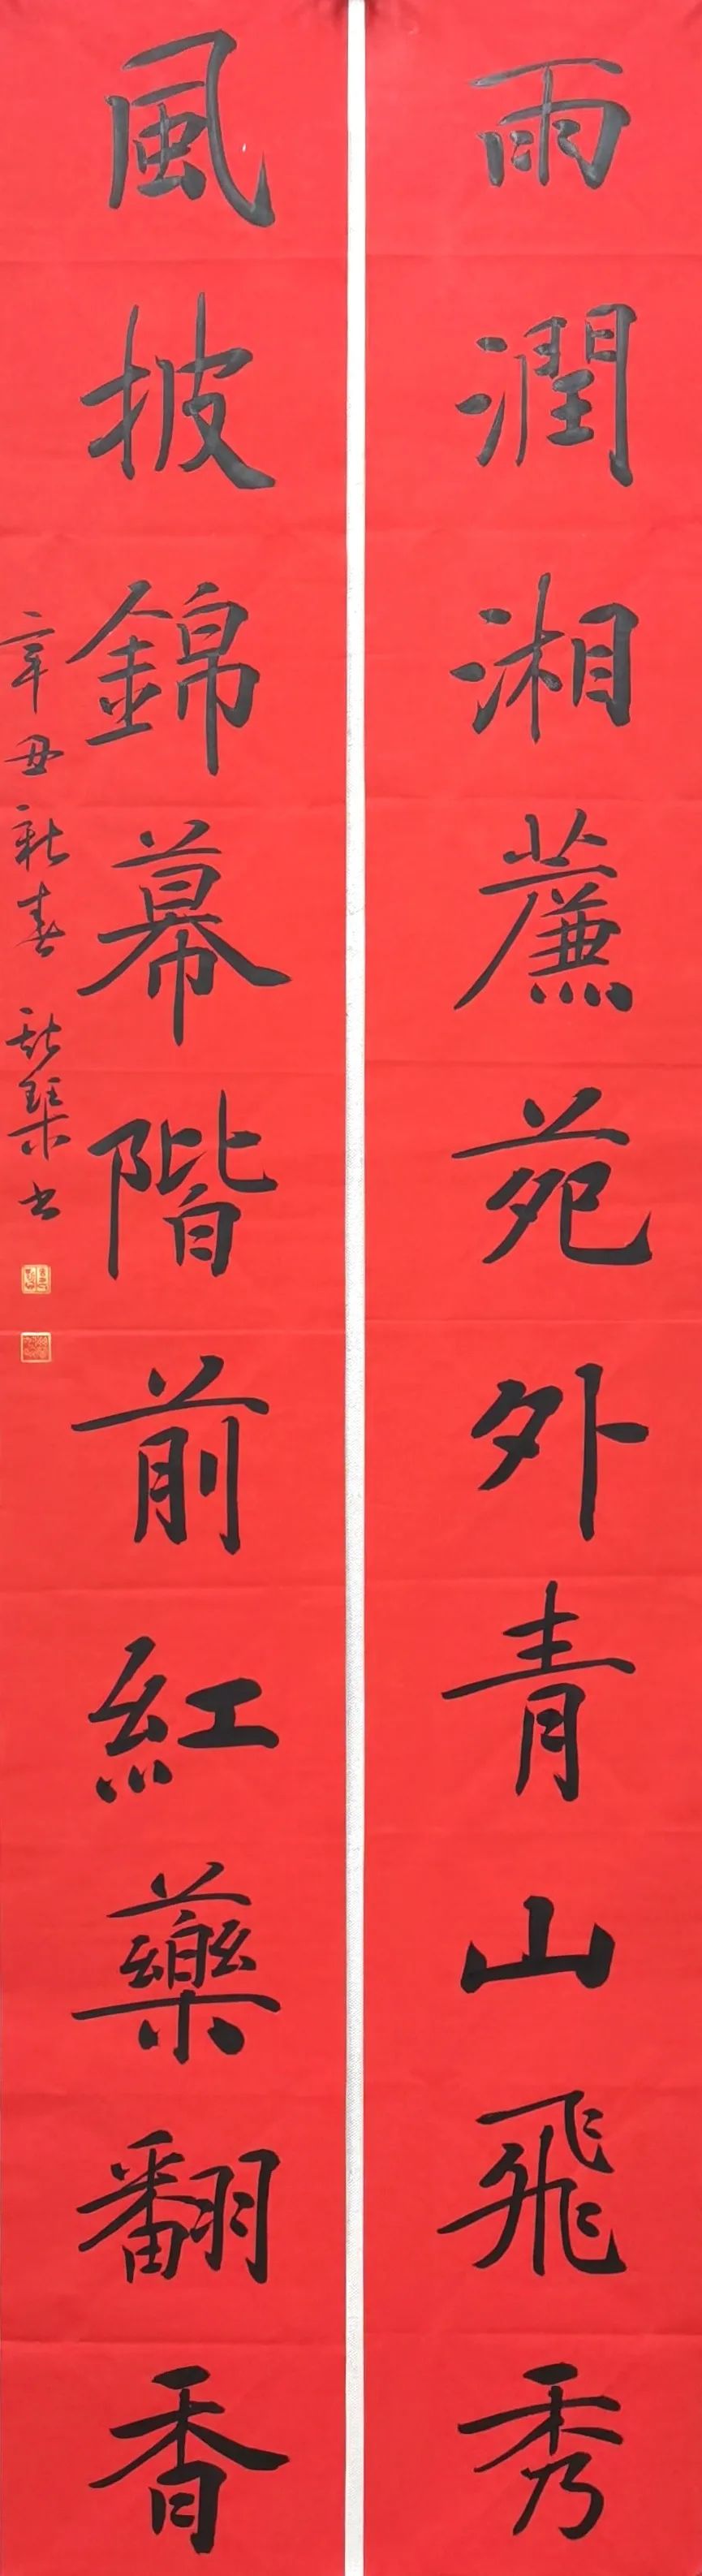 雨潤湘簾苑外青山飛秀
風披錦幕階前紅藥翻香
辛丑新春
書